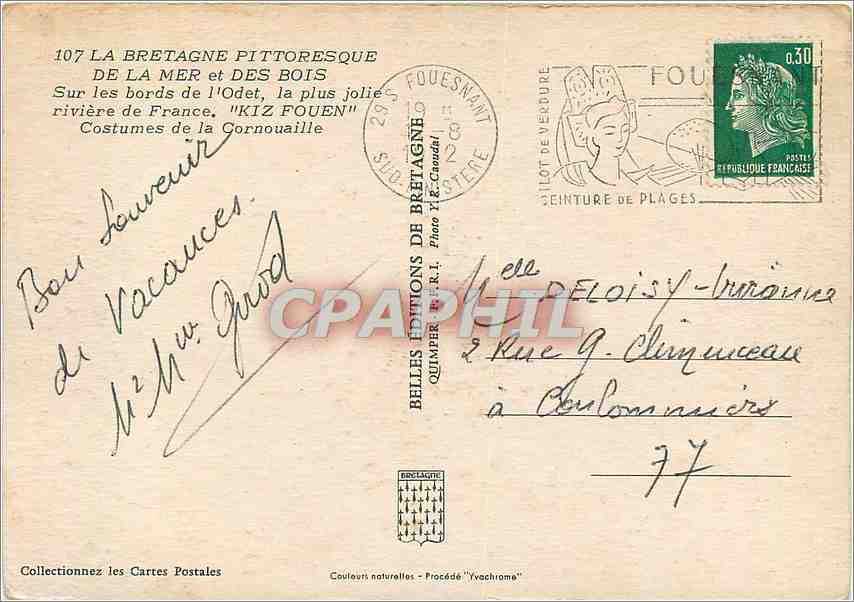 107 LA BRETAGNE PITTORESQUE
DE LA MER et DES BOIS
Sur les bords de l'Odet, la plus jolie
rivière de France. "KIZ FOUEN"
Costumes de la Cornouaille
29 S FOUESNANT
19
8
2
SUD-FINISTERE
ILOT DE VERDURE
FOUESNANT
CEINTURE DE PLAGES
0,30
POSTES
REPUBLIQUE FRANCAISE
Bon Souvenir
de Vacances.
BELLES ÉDITIONS DE BRETAGNE
QUIMPER Photo Y. R. Caoudal
CPAPHIL
Melle DELOISY
2 Rue G. Clemenceau
à Coulommiers
77
BRETAGNE
Collectionnez les Cartes Postales
Couleurs naturelles - Procédé "Yvachrome"